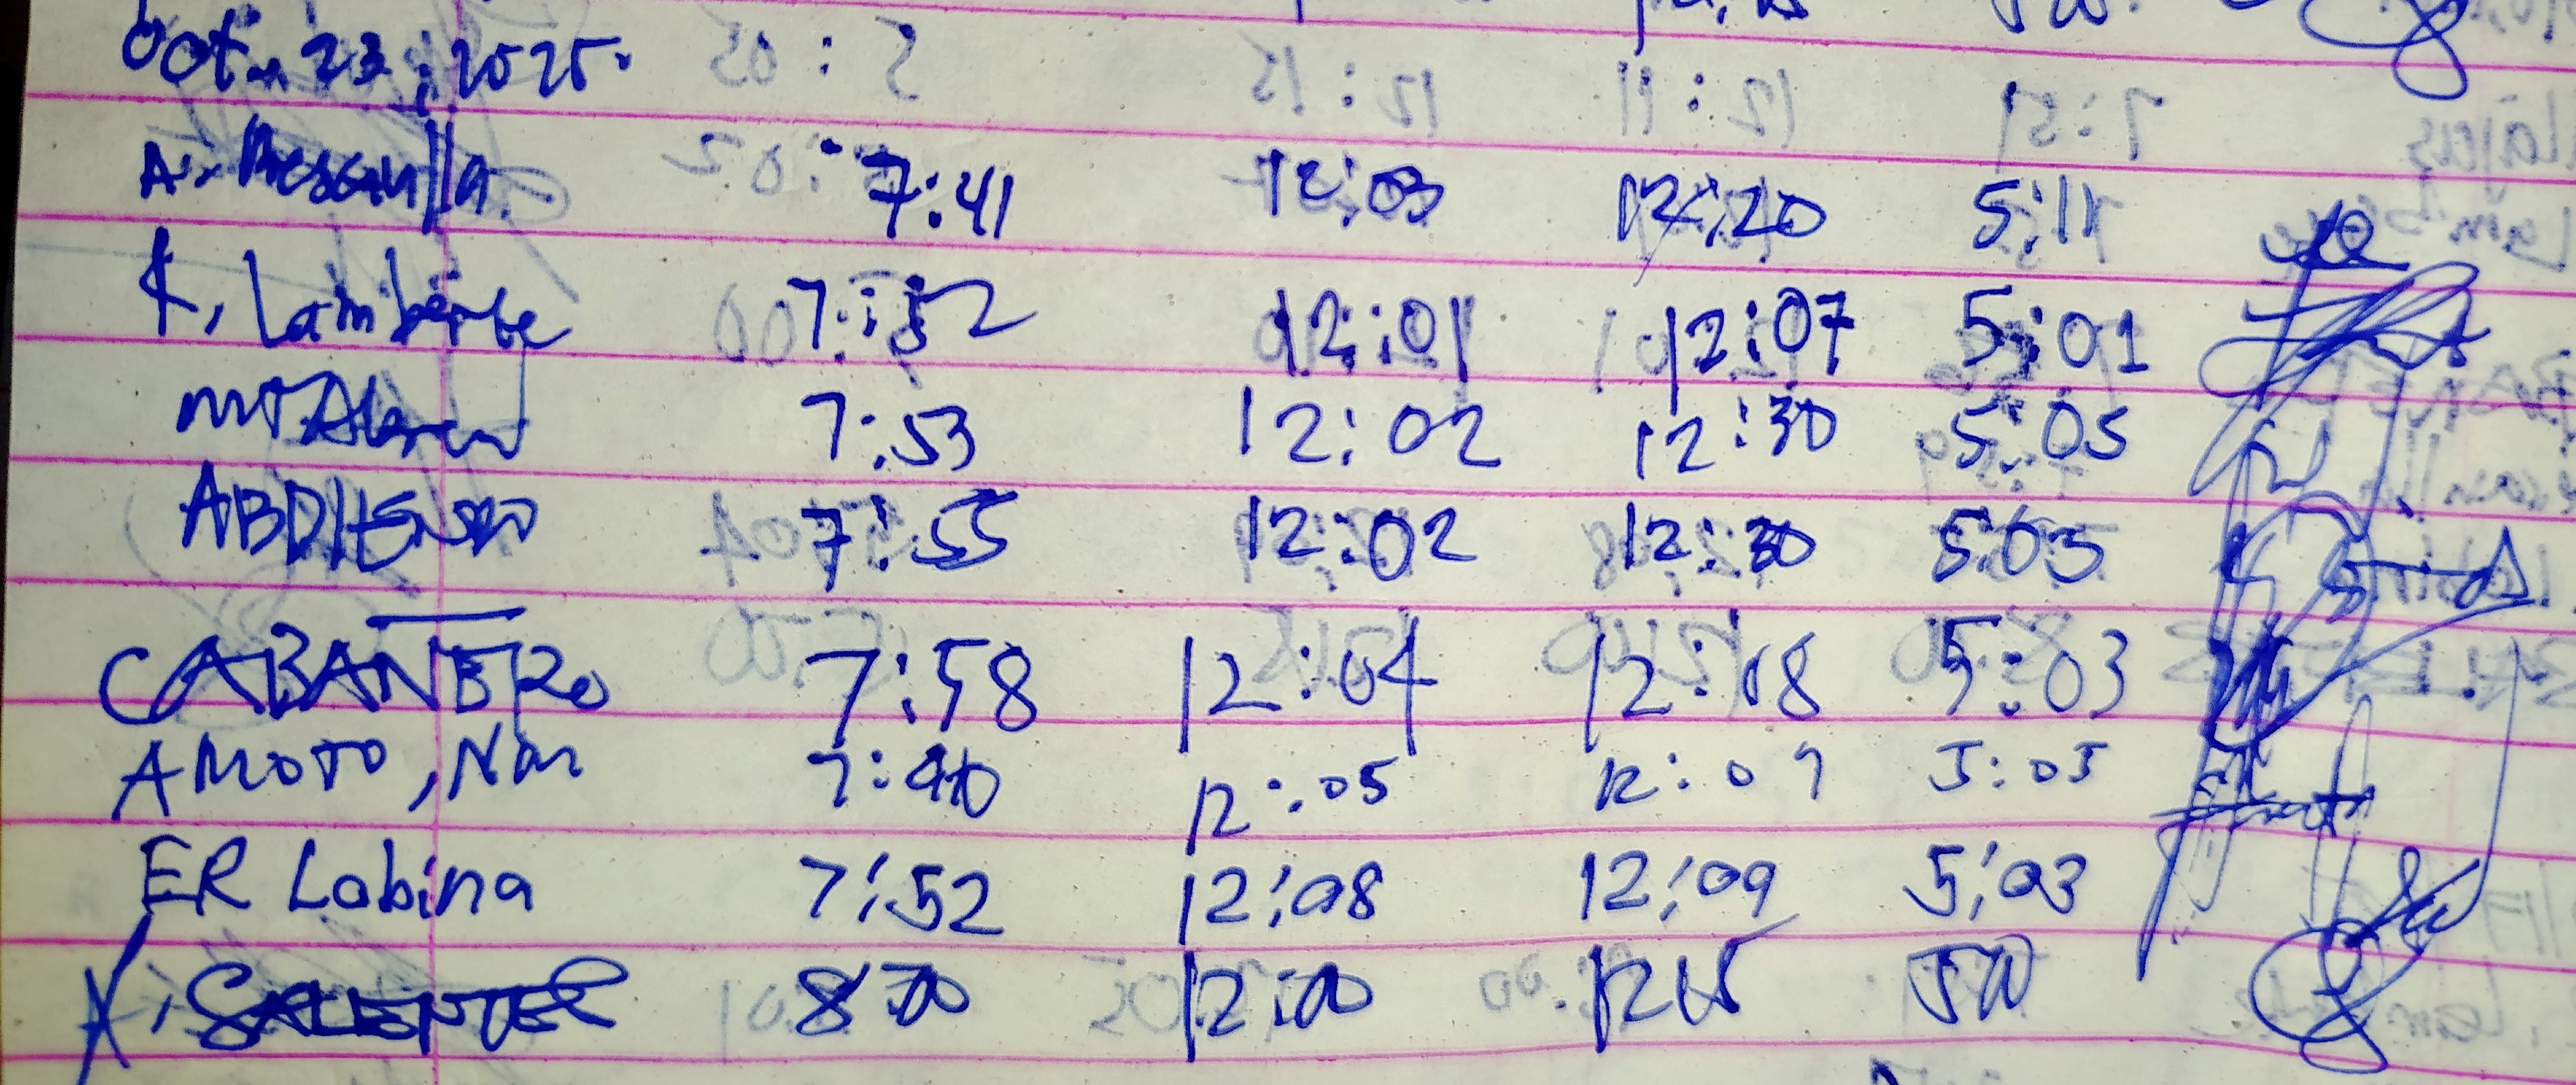 Oct. 23, 2025.
A. Pescanlla 7:41 12:03 12:20 5:11
K. Lamberte 7:52 12:01 12:07 5:01
7:53 12:02 12:30 5:05
ABDIENSO 7:55 12:02 12:30 5:03
CABANERO 7:58 12:04 12:08 5:03
AMOTO, Nin 7:40 12:05 12:07 5:05
ER Labina 7:52 12:08 12:09 5:03
SALIENTER 8:00 12:00 1215 500